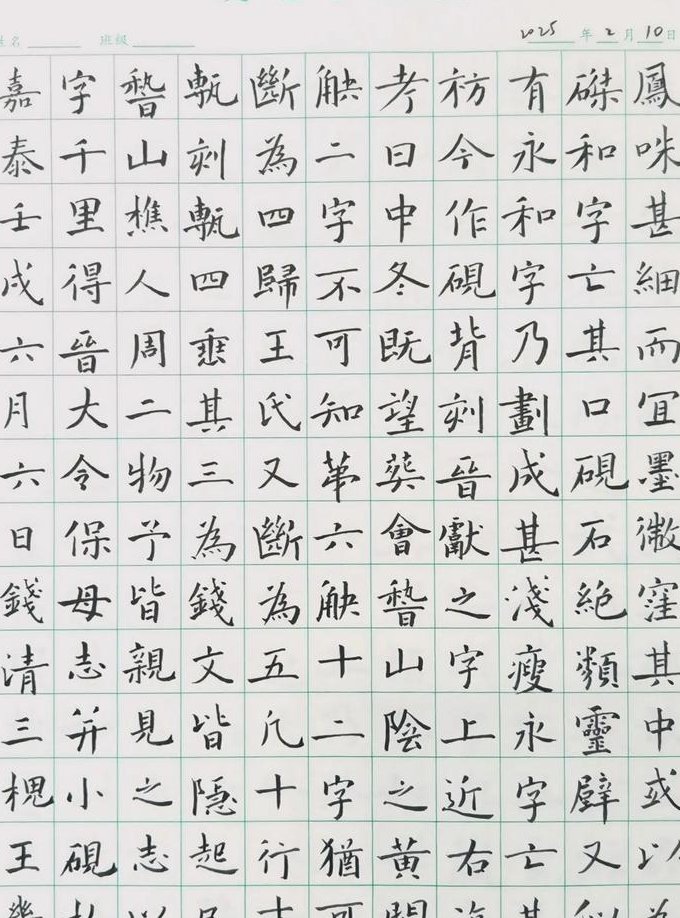 姓名 班級 2025年2月10日
嘉泰壬戌六月六日錢清三槐王
字千里得晉大令保母志并小硯
稽山樵人周二物予皆親見之志以
甎刻甎四垂其三為錢文皆隱起
斷為四歸王氏又斷為五凡十行十
缺二字不可知第六缺十二字猶可
考曰中冬既望葬會稽山陰之黃
祊今作硯背刻晉獻之字上近右
有永和字乃劃成甚淺瘦永字亡其
磔和字亡其口硯石絕類靈壁又似
鳳咮甚細而宜墨微窪其中或以為